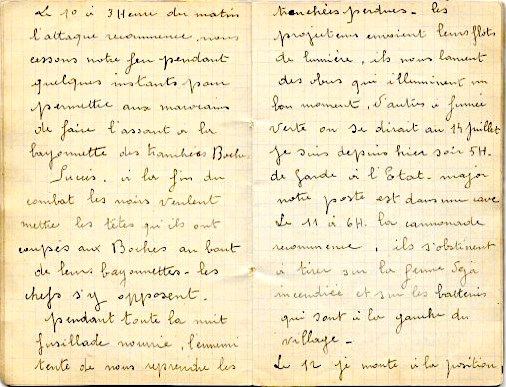 Le 10 à 3 Heure du matin
l'attaque recommence, nous
cessons notre feu pendant
quelques instants pour
permettre aux marocains
de faire l'assaut à la
bayonnette des tranchées Boches
Succès. à la fin du
combat les noirs veulent
mettre les têtes qu'ils ont
coupées aux Boches au bout
de leurs bayonnettes - les
chefs s'y opposent.
pendant toute la nuit
fusillade nourrie, l'ennemi
tente de nous reprendre les
tranchées perdues - les
projecteurs envoient leurs flots
de lumière, ils nous lancent
des obus qui illuminent un
bon moment, d'autres à fumée
verte on se dirait au 14 juillet
je suis depuis hier soir 5H.
de garde à l'Etat-major
notre poste est dans une cave
Le 11 à 6H. la cannonade
recommence, ils s'obstinent
à tirer sur la ferme déjà
incendiée et sur les batteries
qui sont à la gauche du
village -
Le 12 je monte à la position,